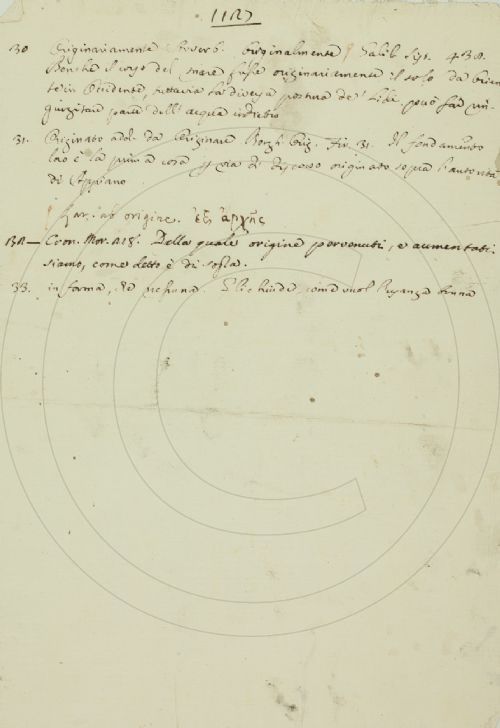 1127
30 Originariamente Avverb. Originalmente Galil. Sist. 438.
Benchè il corso del mare fusse originariamente il solo da Orien
te in Occidente, potrebbe la diversa postura de' Lidi può far rin
gurgitare parte dell' acqua indietro
31. Originato add. da Originare Borgh. Orig. Fir. 31. Il fondamento
loro è la prima cosa per via di discorso originato sopra l'autorità
di Appiano
Lat. ab origine. ἐξ ἀρχῆς
Cron. Mor. 218. Della quale origine pervenuti, e aumentati
siamo, come detto è di sopra.
33. in forma,